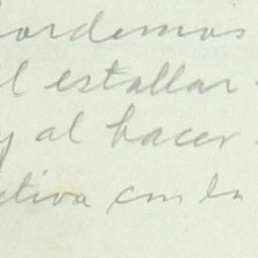 ordemos
l estallar
y al hacer
ctiva con la